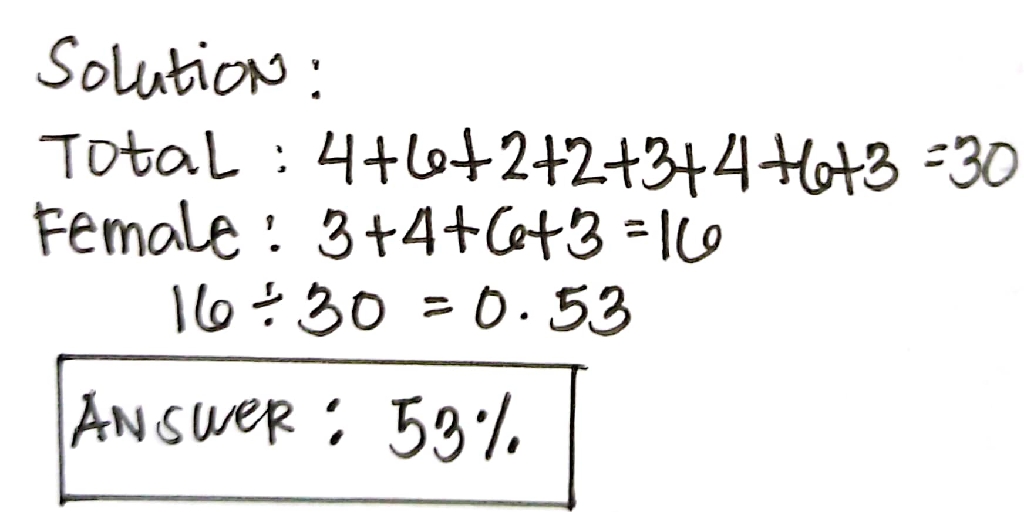 Solution:
Total : 4+6+2+2+3+4+6+3 =30
Female : 3+4+6+3 =16
16 ÷ 30 = 0.53
ANSWER : 53%